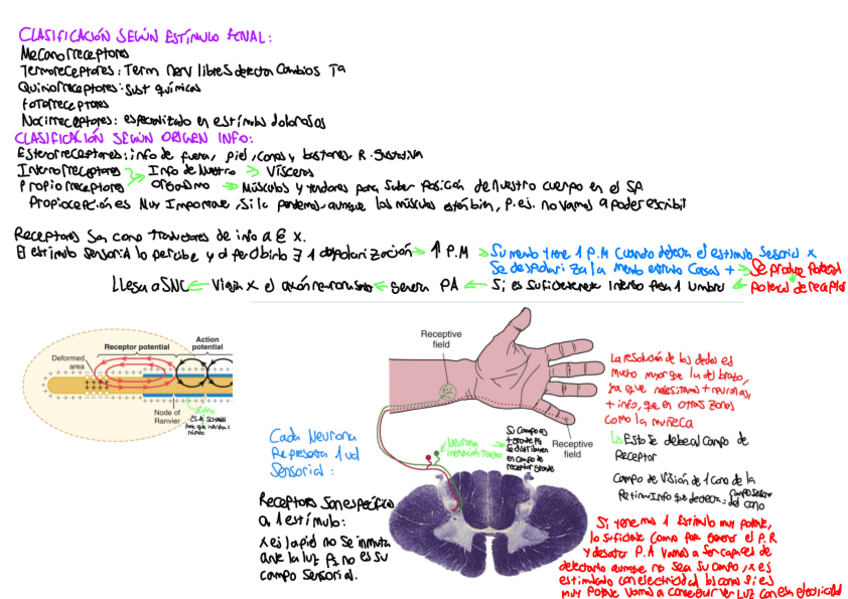 CLASIFICACIÓN SEGÚN ESTÍMULO FENAL:
Mecanorreceptores
Termoreceptores: Term nerv libres detectan cambios Tª
Quimiorreceptores: sust químicas
Fotorreceptores
Nocirreceptores: especializado en estímulos dolorosos
CLASIFICACIÓN SEGÚN ORIGEN INFO:
Exterorreceptores: info de fuera, piel, conos y bastones R. Gustativa
Interorreceptores → Info de nuestro → Vísceras
Propiorreceptores → organismo → Músculos y tendones para saber posición de nuestro cuerpo en el
Propiocepción es muy importante, si la perdemos aunque los músculos estén bien, p.ej. no vamos a poder escribir
Receptores son como traductores de info a E x.
El estímulo sensorial lo percibe y al percibirlo ∃ 1 despolarización → ↑ P.M → Su memb tiene 1 P.M cuando detecta el estímulo sensorial x
se despolariza la memb entrando cargas + → Se produce potencial
Llega a SNC ← Viaja x el axón ← genera PA ← Si es suficientemente intenso pasa 1 umbral ← potencial de receptor
Receptor potential
Action potential
Deformed area
Node of Ranvier
Receptive field
Receptive field
La resolución de los dedos es
mucho mayor que la del brazo,
ya que necesitamos + neuronas,
+ info, que en otras zonas
como la muñeca
↳ Esto se debe al campo de
Receptor
Campo de visión de 1 cono de la
Retina: Info que detecta: del cono
Cada Neurona
Representa 1 ud
Sensorial:
Neurona
Su campo es
+ grande
en campo de
receptor grande
Receptores son específicos
a 1 estímulo:
x ej la piel no se inmuta
ante la luz pq no es su
campo sensorial.
Si tenemos 1 estímulo muy potente,
lo suficiente como para generar el P.R
y desatar P.A vamos a ser capaces de
detectarlo aunque no sea su campo, x ej
estimulando con electricidad los conos si es
muy potente vamos a conseguir ver luz con esa electricidad